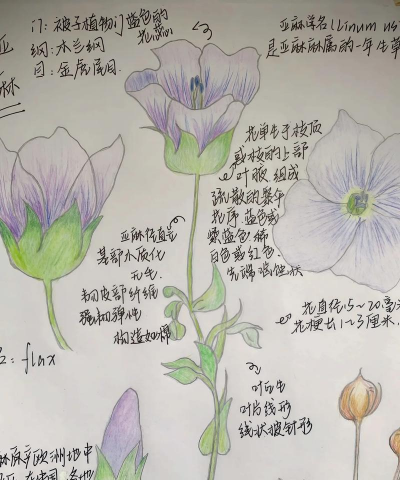 亚
麻
门: 被子植物门
纲: 木兰纲
目: 金虎尾目.
蓝色的
花蕊
亚麻学名(Linum usi
是亚麻麻属的一年生草
花单生于枝顶
或枝的上部
叶腋.组成
疏散的聚伞
花序.蓝色或
紫蓝色.稀
白色或红色.
先端啮蚀状
亚麻径直立
基部木质化
无毛.
韧皮部纤维
强韧弹性
构造如棉
花直径15~20毫米
花梗长1~3厘米.
: flax
叶互生
叶片线形
线状披针形
麻原产欧洲地中